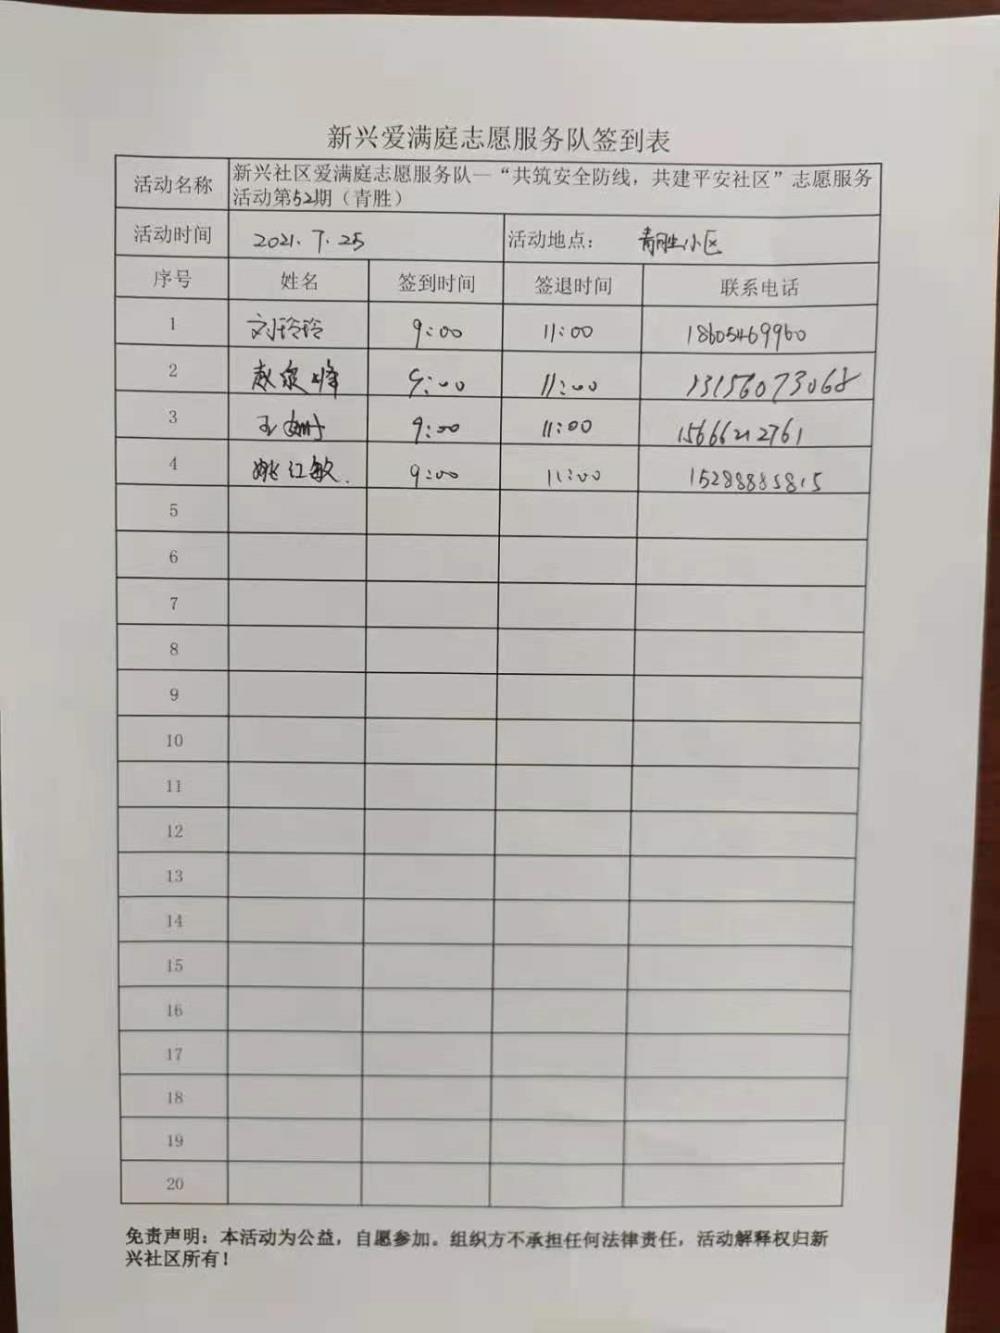 新兴爱满庭志愿服务队签到表
活动名称 新兴社区爱满庭志愿服务队—“共筑安全防线，共建平安社区”志愿服务
活动第52期（青胜）
活动时间 2021.7.25 活动地点： 青胜小区
序号 姓名 签到时间 签退时间 联系电话
1 刘玲玲 9:00 11:00 18605469960
2 赵俊峰 9:00 11:00 13156073068
3 王姗 9:00 11:00 15666212761
4 姚江敏. 9:00 11:00 15288885815
5
6
7
8
9
10
11
12
13
14
15
16
17
18
19
20
免责声明：本活动为公益，自愿参加。组织方不承担任何法律责任，活动解释权归新
兴社区所有！